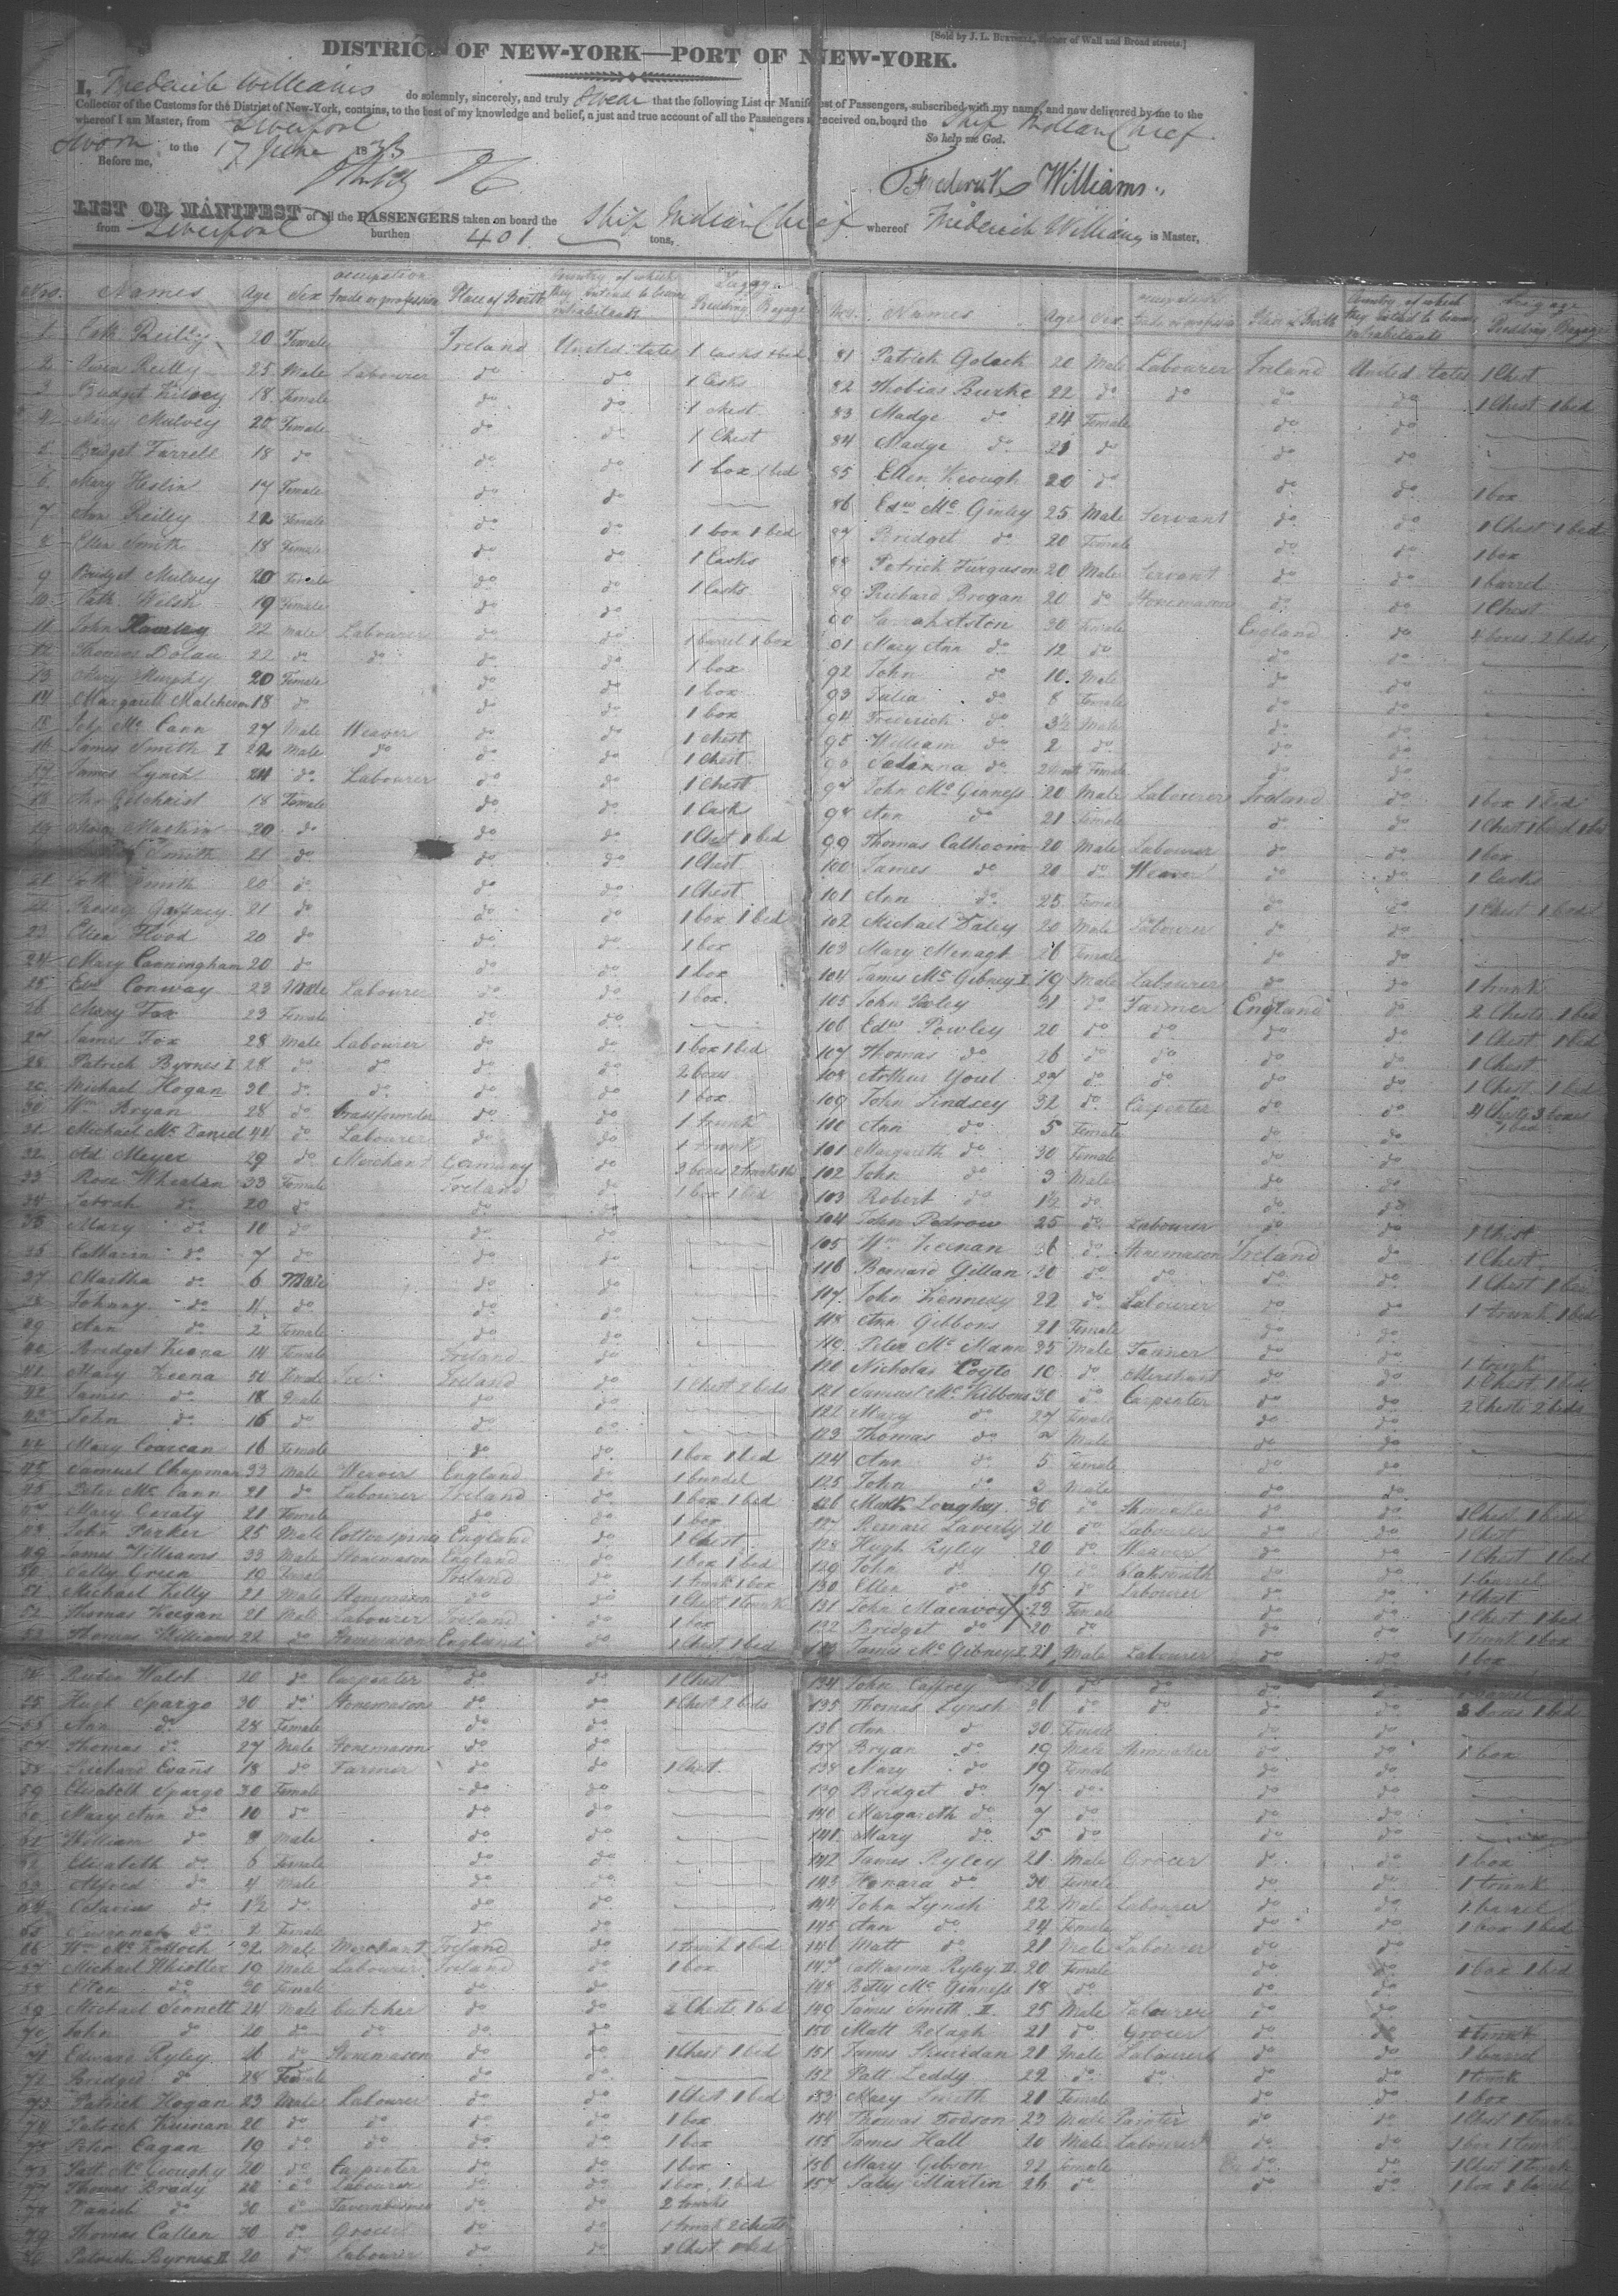 [Sold by J. L. corner of Wall and Broad streets.]
DISTRICT OF NEW-YORK—PORT OF NEW-YORK.
I, Frederick Williams do solemnly, sincerely, and truly swear that the following List or Manifest of Passengers, subscribed with my name, and now delivered by me to the
Collector of the Customs for the District of New-York, contains, to the best of my knowledge and belief, a just and true account of all the Passengers received on board the Ship Indian Chief
whereof I am Master, from Liverpool So help me God.
Sworn to the 17 June 1833
Before me, Frederick Williams
LIST OR MANIFEST of all the PASSENGERS taken on board the Ship Indian Chief whereof Frederick Williams is Master,
from Liverpool burthen 401 tons,
Nos. Names Age Sex occupation trade or profession Place of Birth Country of which they intend to become inhabitants Luggage Bedding Bagage
1 Cath Reilly 20 Female Ireland United States 1 Casks 1 bed
2 Owen Reilly 25 Male Labourer do do 1 Casks
3 Bridget 18 Female do do 1 chest
4 Mary Mulvey 20 Female do do 1 Chest
5 Bridget Farrell 18 do do do 1 box 1 bed
6 Mary Heslin 17 Female do do
7 Ann Reiley 22 Female do do 1 box 1 bed
8 Ellen Smith 18 Female do do 1 Casks
9 Bridget Mulvey 20 Female do do 1 Casks
10 Cath Welsh 19 Female do do
11 John 22 Male Labourer do do 1 barrel 1 box
12 Thomas Dolan 22 do do do do 1 box
13 Mary Murphy 20 Female do do 1 box
14 Margarett 18 do do do 1 box
15 Mc Cann 27 Male Weaver do do 1 chest
16 James Smith I 22 Male do do do 1 Chest
17 James Lynch 24 do Labourer do do 1 Chest
18 Ann Gilchrist 18 Female do do 1 Cask
19 20 do do do 1 Chest 1 bed
Smith 21 do do do 1 Chest
21 Cath Smith 20 do do do 1 Chest
22 Rosey Gaffney 21 do do do 1 box 1 bed
23 Eliza Flood 20 do do do 1 box
24 Mary Cunningham 20 do do do 1 box
25 Edw Conway 23 Male Labourer do do 1 box
26 Mary Fox 23 Female do do
27 James Fox 28 Male Labourer do do 1 box 1 bed
28 Patrick Byrnes I 28 do do do do 2 boxes
29 Michael Hogan 30 do do do do 1 box
30 Wm Bryan 28 do Brassfounder do do 1 trunk
31 Michael Mc Daniel 44 do Labourer do do 1 trunk
32 Ad Meyer 29 do Merchant Germany do
33 Rose Whealin 33 Female Ireland do 1 box 1 bed
34 do 20 do do do
35 Mary do 10 do do do
36 Catharin do 7 do do do
37 Martha do 6 Male do do
38 Johnny do 4 do do do
39 Ann do 2 Female do do
40 Bridget Keena 14 Female Ireland do
41 Mary Keena 50 Female Ireland do 1 Chest 2 beds
42 James do 18 Male do do
43 John do 16 do do do
44 Mary Corcan 16 Female do do 1 box 1 bed
45 Samuel Chapman 33 Male Weaver England do 1 bundel
46 Peter Mc Cann 21 do Labourer Ireland do 1 box 1 bed
47 Mary Geraty 21 Female do do 1 box
48 John Parker 25 Male England do 1 Chest
49 James Williams 33 Male Stonemason England do 1 box 1 bed
50 Sally Green 19 Female Ireland do 1 trunk 1 box
51 Michael Kelly 21 Male Stonemason do do 1 Chest 1 trunk
52 Thomas Keegan 21 Male Labourer Ireland do 1 box
53 Thomas Williams 22 do Stonemason England do 1 Chest 1 bed
54 Walsh 20 do Carpenter do do 1 Chest
55 Hugh Spargo 30 do Stonemason do do 1 Chest 2 beds
56 Ann do 28 Female do do
57 Thomas do 27 Male Stonemason do do
58 Richard Evans 18 do Farmer do do 1 Chest
59 Elisabeth Spargo 30 Female do do
60 Mary Ann do 10 do do do
61 William do Male do do
62 Elisabeth do 6 Female do do
63 Alfred do 4 Male do do
64 Octavius do 1½ do do do
65 do Female do do
66 Wm 32 Male Merchant Ireland do 1 trunk 1 bed
67 Michael Whistler 19 Male Labourer Ireland do 1 box
68 Ellen do 30 Female do do
69 Michael Sennett 24 Male butcher do do 2 Chests 1 bed
70 John do 20 do do do do
71 Edward Ryley 26 do Stonemason do do 1 Chest 1 bed
72 Bridged do 28 Female do do
73 Patrick Hogan 23 Male Labourer do do 1 Chest 1 bed
74 Patrick 20 do do do do 1 box
75 Peter Eagan 19 do do do do 1 box
76 Patt 20 do Carpenter do do 1 box
77 Thomas Brady 20 do Labourer do do 1 box 1 bed
78 Daniel do 30 do do do 2 trunks
79 Thomas Callen 30 do Grocer do do 1 trunk 2 chests
80 Patrick Byrnes II 20 do Labourer do do 1 Chest 1 bed
Nos. Names Age Sex occupation trade or profession Place of Birth Country of which they intend to become inhabitants Luggage Bedding Bagage
81 Patrick Golack 20 Male Labourer Ireland United States 1 Chest
82 Thobias Burke 22 do do do do 1 Chest 1 bed
83 Madge do 24 Female do do
84 Madge do 21 do do do
85 Ellen Keough 20 do do do 1 box
86 Edw Mc Ginley 25 Male Servant do do 1 Chest 1 bed
87 Bridget do 20 Female do do 1 box
88 Patrick Furguson 20 Male Servant do do 1 barrel
89 Richard Brogan 20 do Stonemason do do 1 Chest
90 30 Female England do 4 boxes 2 beds
91 Mary Ann do 12 do do do
92 John do 10 Male do do
93 Julia do 8 Female do do
94 Frederick do 3½ Male do do
95 William do 2 do do do
96 do Female do do
97 John Mc Ginness 20 Male Labourer Ireland do 1 box 1 bed
98 Ann do 21 Female do do
99 Thomas Calhoom 20 Male Labourer do do 1 box
100 James do 20 do Weaver do do 1 Casks
101 Ann do 25 Female do do 1 Chest 1 bed
102 Michael Daley 20 Male Labourer do do
103 Mary Menagh 26 Female do do
104 James Mc Gibney I 19 Male Labourer do do 1 trunk
105 John 31 do Farmer England do 2 Chests 1 bed
106 Edw Powley 20 do do do do 1 Chest 1 bed
107 Thomas do 26 do do do do 1 Chest
108 Arthur Youl 27 do do do do 1 Chest 1 bed
109 John Lindsey 32 do Carpenter do do 4 Chests 3 boxes 1 bed
110 Ann do 5 Female do do
101 Margareth do 30 Female do do
102 John do 3 Male do do
103 Robert do 1½ do do do
104 John Pedrow 25 do Labourer do do 1 Chest
105 Wm Keenan 36 do Stonemason Ireland do 1 Chest
116 Bernard Gillan 30 do do do do 1 Chest 1 bed
117 John Kennedy 22 do Labourer do do 1 trunk 1 bed
118 Ann Gibbons 21 Female do do
119 Peter Mc Mann 35 Male Tanner do do 1 trunk
120 Nicholas Coyto 10 do Merchant do do 1 Chest 1 bed
121 Samuel Mc Kibbons 30 do Carpenter do do 2 Chests 2 beds
122 Mary do 27 Female do do
123 Thomas do 7 Male do do
124 Ann do 5 Female do do
125 John do 3 Male do do
126 Mark 30 do Shoemaker do do 1 Chest 1 bed
127 Bernard Laverty 20 do Labourer do do 1 Chest
128 Hugh Ryley 20 do Weaver do do 1 Chest 1 bed
129 John do 19 do do do 1 barrel
130 Ellen do 25 do Labourer do do 1 Chest
131 John Macavoy 23 Female do do 1 Chest 1 bed
132 Bridget do 20 do do do 1 trunk 1 box
133 James Mc Gibney II 21 Male Labourer do do 1 box
134 John Caffrey 20 do do do do
135 Thomas Lynsh 30 do do do do 3 boxes 1 bed
136 Ann do 30 Female do do
137 Bryan do 19 Male Shoemaker do do 1 box
138 Mary do 19 Female do do
139 Bridget do 17 do do do
140 Margareth do 7 do do do
141 Mary do 5 do do do
142 James Ryley 21 Male Grocer do do 1 box
143 Honara do 30 Female do do 1 trunk
144 John Lynsh 22 Male Labourer do do 1 barrel
145 Ann do 24 Female do do 1 box 1 bed
146 Matt do 21 Male Labourer do do
147 Catharina Ryley II 20 Female do do 1 box 1 bed
148 Betty Mc Ginness 18 do do do
149 James Smith II 25 Male Labourer do do
150 Matt 21 do Grocer do do 1 trunk
151 James Sheridan 21 Male Labourer do do 1 barrel
152 Patt Leddy 22 do do do do 1 trunk
153 Mary Smith 21 Female do do 1 box
154 Thomas Dodson 23 Male Painter do do 1 Chest 1 trunk
155 James Hall 20 Male Labourer do do 1 box 1 trunk
156 Mary Gibson 22 Female do do 1 Chest 1 trunk
157 Martin 26 do do do 1 box 1 barrel